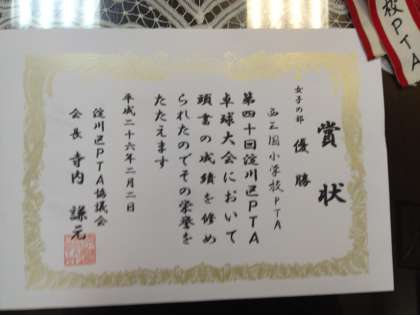 賞状
女子の部 優勝
西三国小学校PTA
第四十回淀川区PTA
卓球大会において
頭書の成績を修め
られたのでその栄誉を
たたえます
平成二十六年二月二日
淀川区PTA協議会
会長 寺内 謙元
校PTA